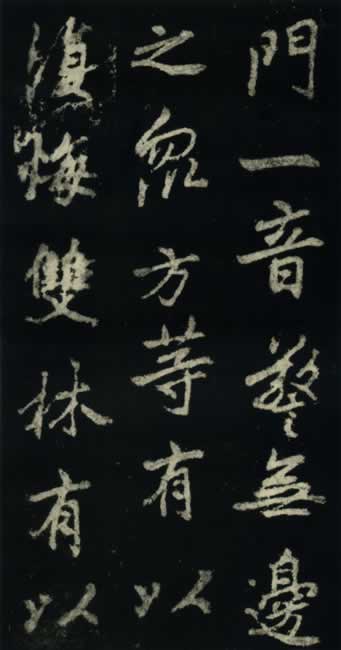 門一音警無邊
之眾方等有以
復悔雙林有以